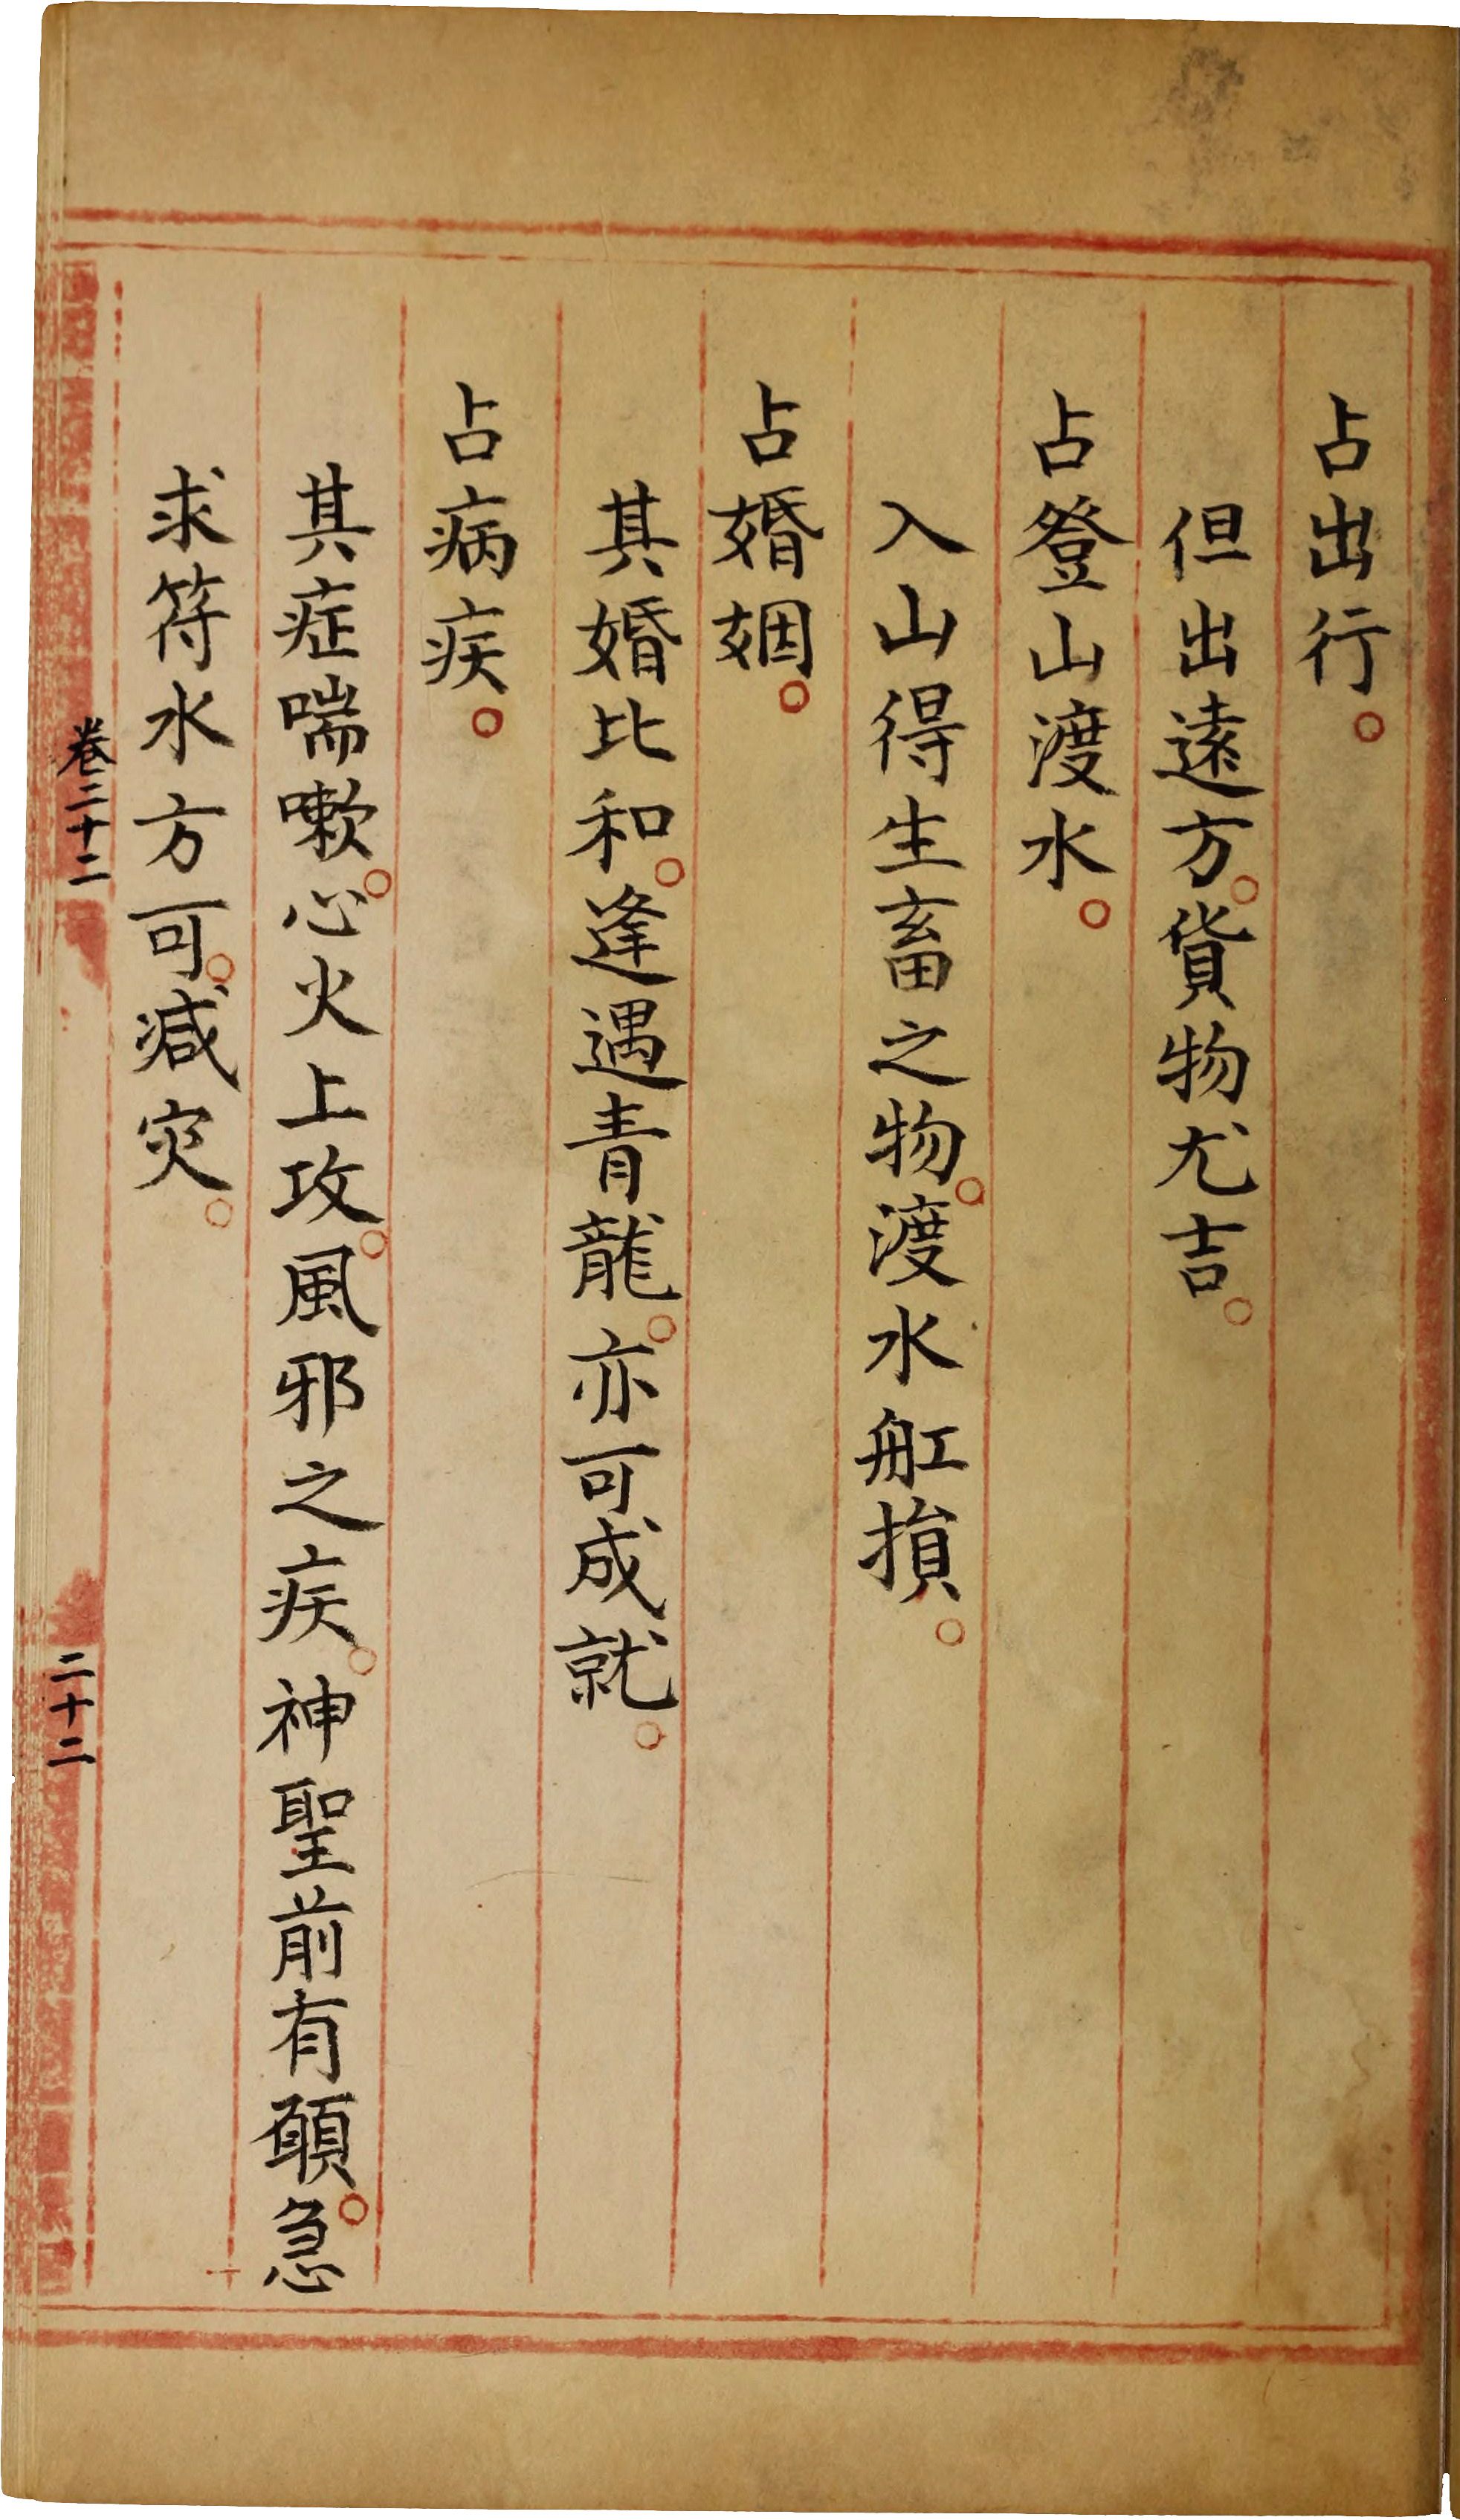 占出行。
但出遠方。貨物尤吉。
占登山渡水。
入山得生畜之物。渡水舡損。
占婚姻。
其婚比和。逢遇青龍。亦可成就。
占病疾。
其症喘嗽。心火上攻。風邪之疾。神聖前有願。急
求符水方可。減灾。
卷二十二
二十二